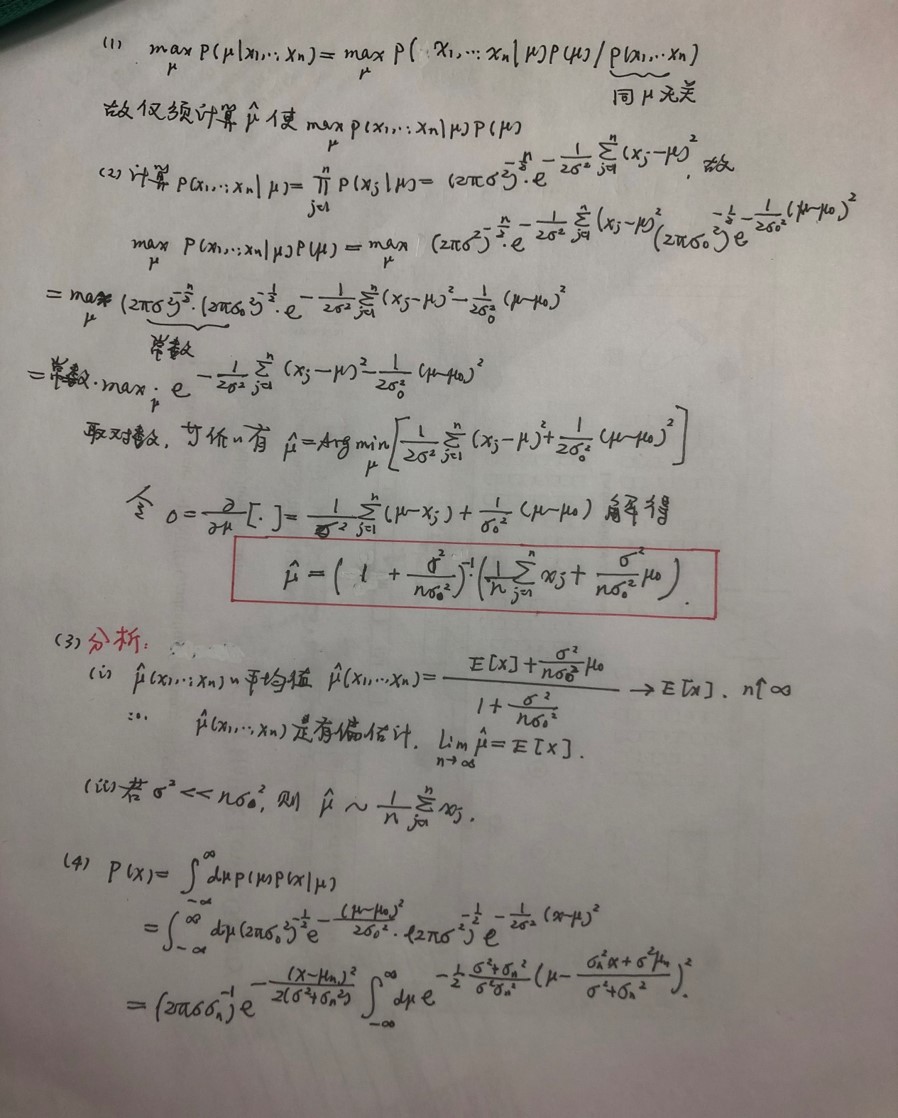 (1) max_μ P(μ|x₁,…,xₙ) = max_μ P(x₁,…xₙ|μ)P(μ)/P(x₁,…xₙ)
同μ无关
故仅须计算 μ̂ 使 max_μ P(x₁,…,xₙ|μ)P(μ)
(2) 计算 P(x₁,…,xₙ|μ) = ∏_{j=1}^{n} P(xⱼ|μ) = (2πσ²)^{-n/2}·e^{-1/(2σ²) Σ_{j=1}^{n}(xⱼ-μ)²}, 故
max_μ P(x₁,…,xₙ|μ)P(μ) = max_μ (2πσ²)^{-n/2}·e^{-1/(2σ²) Σ_{j=1}^{n}(xⱼ-μ)²}(2πσ₀²)^{-1/2}e^{-1/(2σ₀²)(μ-μ₀)²}
= max_μ (2πσ²)^{-n/2}·(2πσ₀²)^{-1/2}·e^{-1/(2σ²) Σ_{j=1}^{n}(xⱼ-μ)²-1/(2σ₀²)(μ-μ₀)²}
常数
= 常数·max_μ e^{-1/(2σ²) Σ_{j=1}^{n}(xⱼ-μ)²-1/(2σ₀²)(μ-μ₀)²}
取对数, 等价有 μ̂ = Arg min_μ [1/(2σ²) Σ_{j=1}^{n}(xⱼ-μ)²+1/(2σ₀²)(μ-μ₀)²]
令 0 = ∂/∂μ[·] = 1/σ² Σ_{j=1}^{n}(μ-xⱼ) + 1/σ₀²(μ-μ₀) 解得
μ̂ = (1 + σ²/(nσ₀²))^{-1}·(1/n Σ_{j=1}^{n} xⱼ + σ²/(nσ₀²) μ₀).
(3) 分析:
(i) μ̂(x₁,…,xₙ) 平均值 μ̂(x₁,…,xₙ) = (E[x]+σ²/(nσ₀²) μ₀)/(1+σ²/(nσ₀²)) → E[x]. n↑∞
∴ μ̂(x₁,…,xₙ) 是有偏估计. Lim_{n→∞} μ̂ = E[x].
(ii) 若 σ² << nσ₀², 则 μ̂ ~ 1/n Σ_{j=1}^{n} xⱼ.
(4) P(x) = ∫_{-∞}^{∞} dμ P(μ)P(x|μ)
= ∫_{-∞}^{∞} dμ(2πσ₀²)^{-1/2}e^{-(μ-μ₀)²/(2σ₀²)}·(2πσ²)^{-1/2}e^{-1/(2σ²)(x-μ)²}
= (2πσσₙ)^{-1}e^{-(x-μₙ)²/(2(σ²+σₙ²))} ∫_{-∞}^{∞} dμ e^{-1/2 (σ²+σₙ²)/(σ²σₙ²) (μ-(σₙ²x+σ²μₙ)/(σ²+σₙ²))²}.